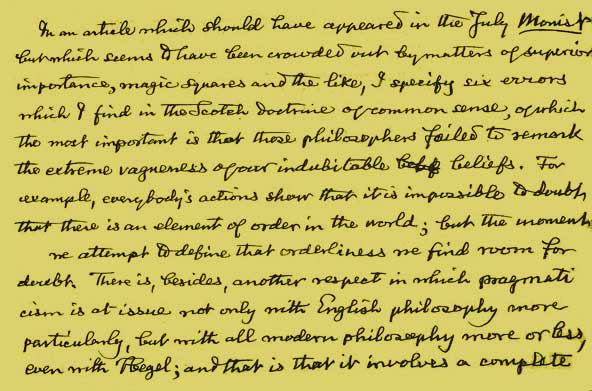 In an article which should have appeared in the July Monist
but which seems to have been crowded out by matters of superior
importance, magic squares and the like, I specify six errors
which I find in the Scotch doctrine of common sense, of which
the most important is that those philosophers failed to remark
the extreme vagueness of our indubitable beliefs. For
example, everybody's actions show that it is impossible to doubt
that there is an element of order in the world; but the moment
we attempt to define that orderliness we find room for
doubt. There is, besides, another respect in which pragmati
cism is at issue not only with English philosophy more
particularly, but with all modern philosophy more or less,
even with Hegel; and that is that it involves a complete